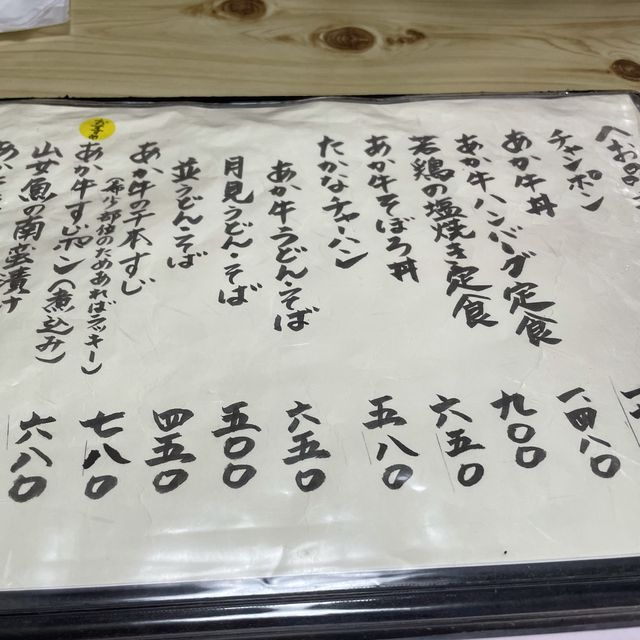 チャンポン
あか牛丼
あか牛ハンバーグ定食 一、四八〇
若鶏の塩焼き定食 九〇〇
あか牛そぼろ丼 六五〇
たかなチャーハン 五八〇
あか牛うどん・そば 六五〇
月見うどん・そば 五〇〇
並うどん・そば 四五〇
あか牛の千本すじ 七八〇
(希少部位のためあればラッキー)
おすすめ
あか牛すじポン(煮込み) 六八〇
山女魚の南蛮漬け